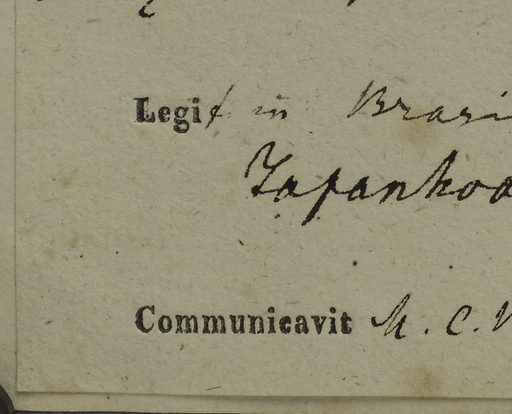 Legit in Brasi
Tapanhoa
Communicavit M. C. V